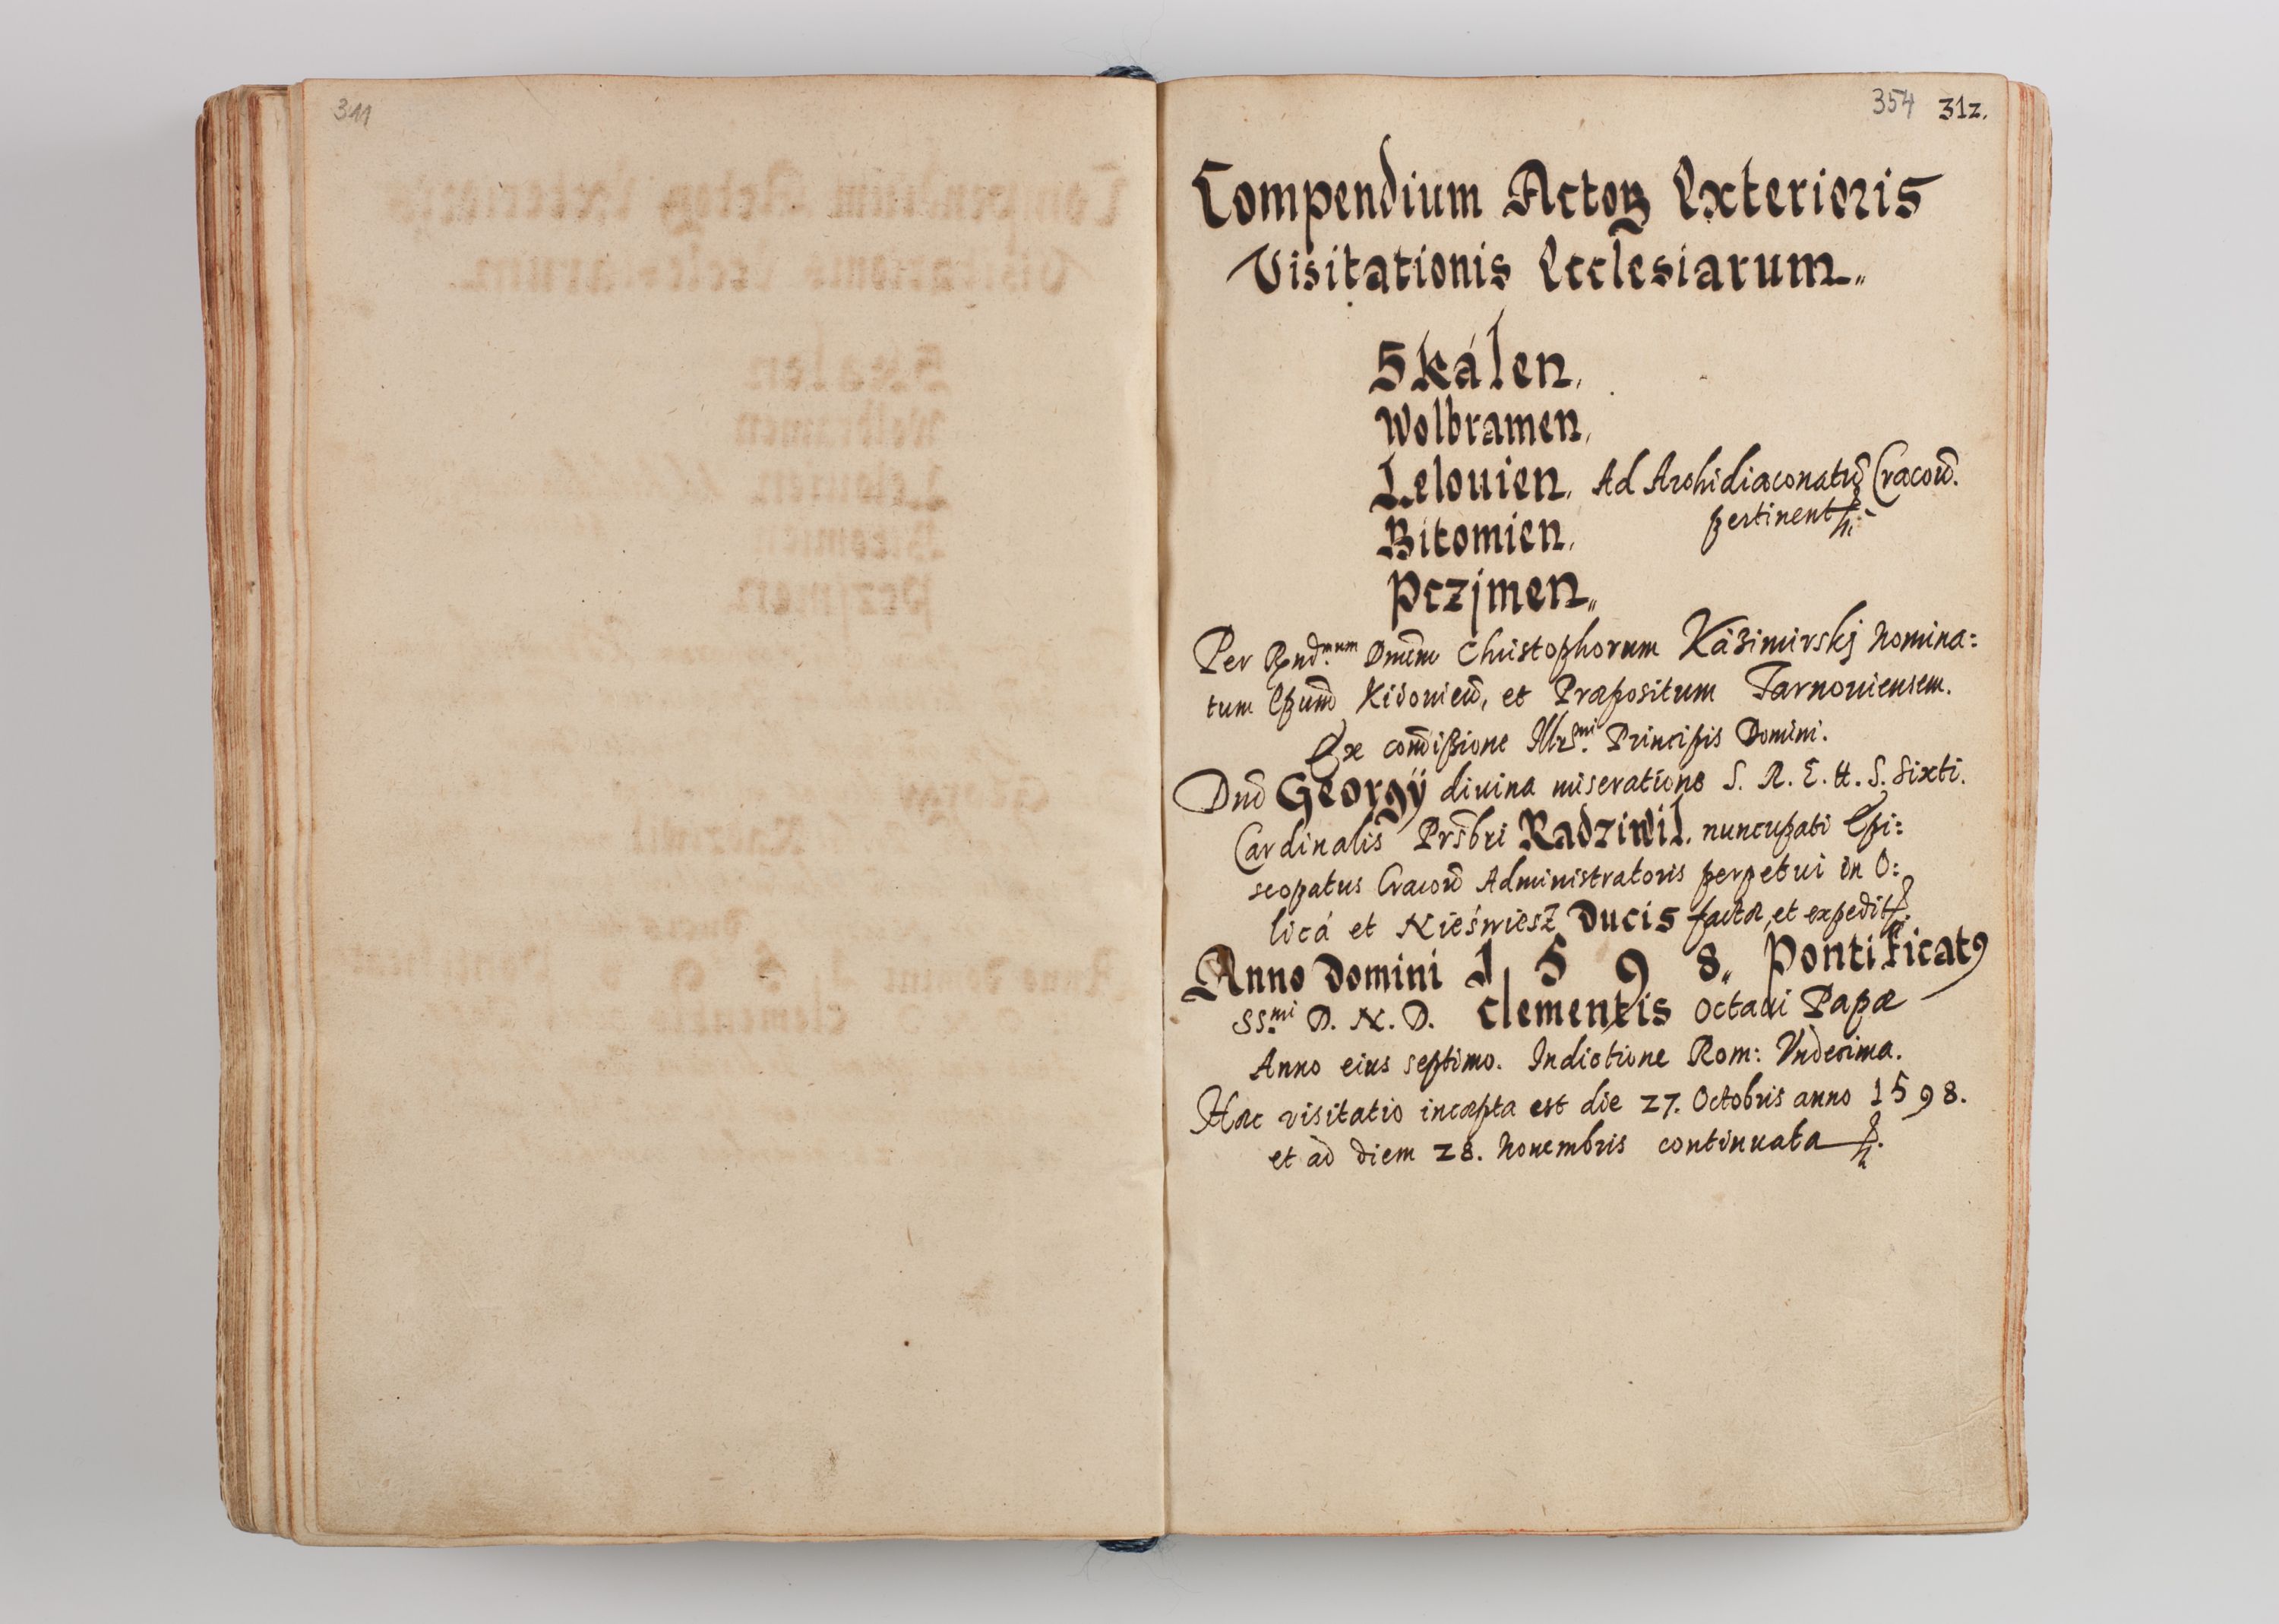 311
354 312.
Compendium Actoꝝ Exterioris
Visitationis Ecclesiarum„
Skálen,
Wolbramen,
Lelouien, Ad Archidiaconatũ Cracoũ.
pertinent
Bitomien,
Pczjmen„
Per Rnd.mum Dnũm Christophorum Kaźimirskj Nomina:
tum Epum̃ Kiiouien̄, et Præpositum Tarnouiensem.
Ex com̃ißione Illr̃.mi Principis Domini.
Dnĩ Georgÿ diuina miseratione S. R. E. tt. S. Sixti.
Cardinalis Prs̃bri Radziwil. nuncupati Epi:
scopatus Cracoũ Administratoris perpetui in O:
licá et Nieświesz Ducis factæ, et expedit.
Anno Domini 1 5 9 8„ Pontificatꝰ
SS.mi D. N. D. Clementis Octaui Papæ
Anno eius septimo. Indictione Rom: Vndecima.
Hæc visitatio incæpta est die 27. Octobris anno 1598.
et ad diem 28. Nouembris continuata.